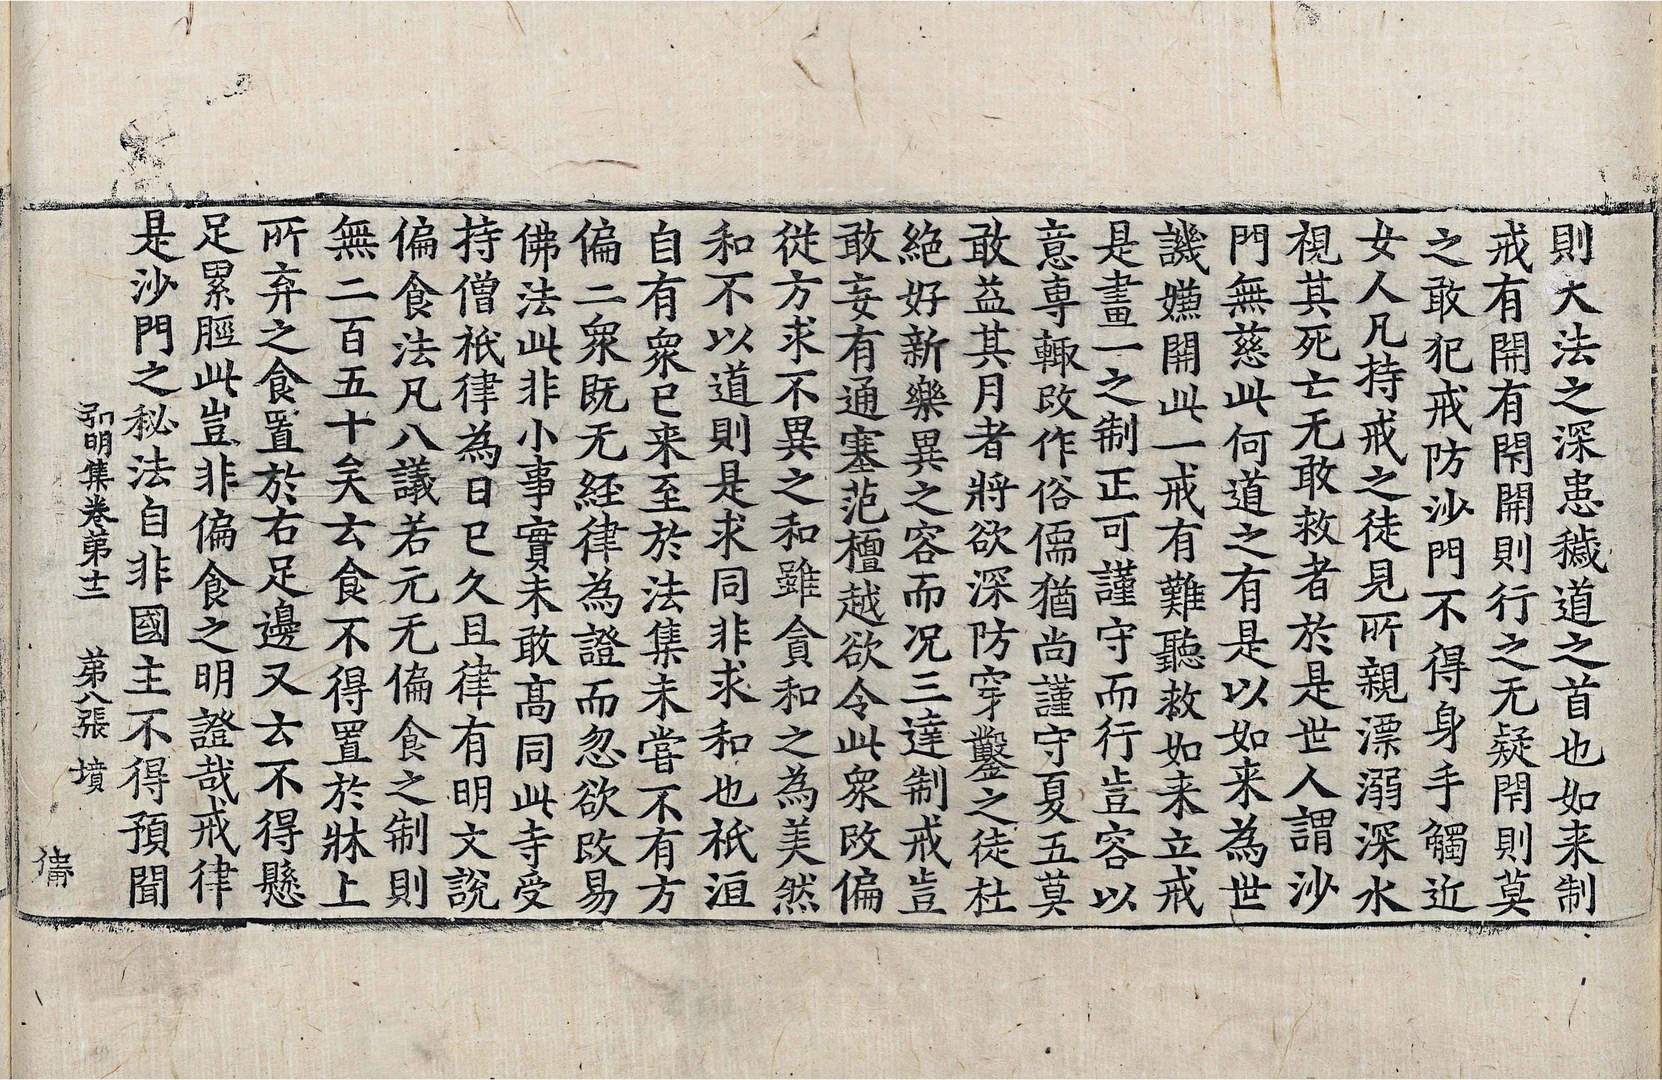 則大法之深患穢道之首也如来制
戒有開有閇開則行之无疑閇則莫
之敢犯戒防沙門不得身手觸近
女人凡持戒之徒見所親漂溺深水
視其死亡无敢救者於是世人謂沙
門無慈此何道之有是以如来為世
譏嫌開此一戒有難聽救如来立戒
是畫一之制正可謹守而行豈容以
意専輙改作俗儒猶尚謹守夏五莫
敢益其月者將欲深防穿鑿之徒杜
絶好新樂異之容而况三達制戒豈
敢妄有通塞范檀越欲令此衆改偏
從方求不異之和雖貪和之為美然
和不以道則是求同非求和也祇洹
自有衆已来至於法集未嘗不有方
偏二衆既无經律為證而忽欲改易
佛法此非小事實未敢髙同此寺受
持僧祇律為日已久且律有明文說
偏食法凡八議若元无偏食之制則
無二百五十矣云食不得置於牀上
所弃之食置於右足邊又云不得懸
足累脛此豈非偏食之明證哉戒律
是沙門之秘法自非國主不得預聞
弘明集卷弟十二 弟八張 墳